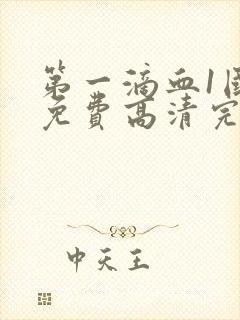 第一滴血1国
免费高清完
中天王